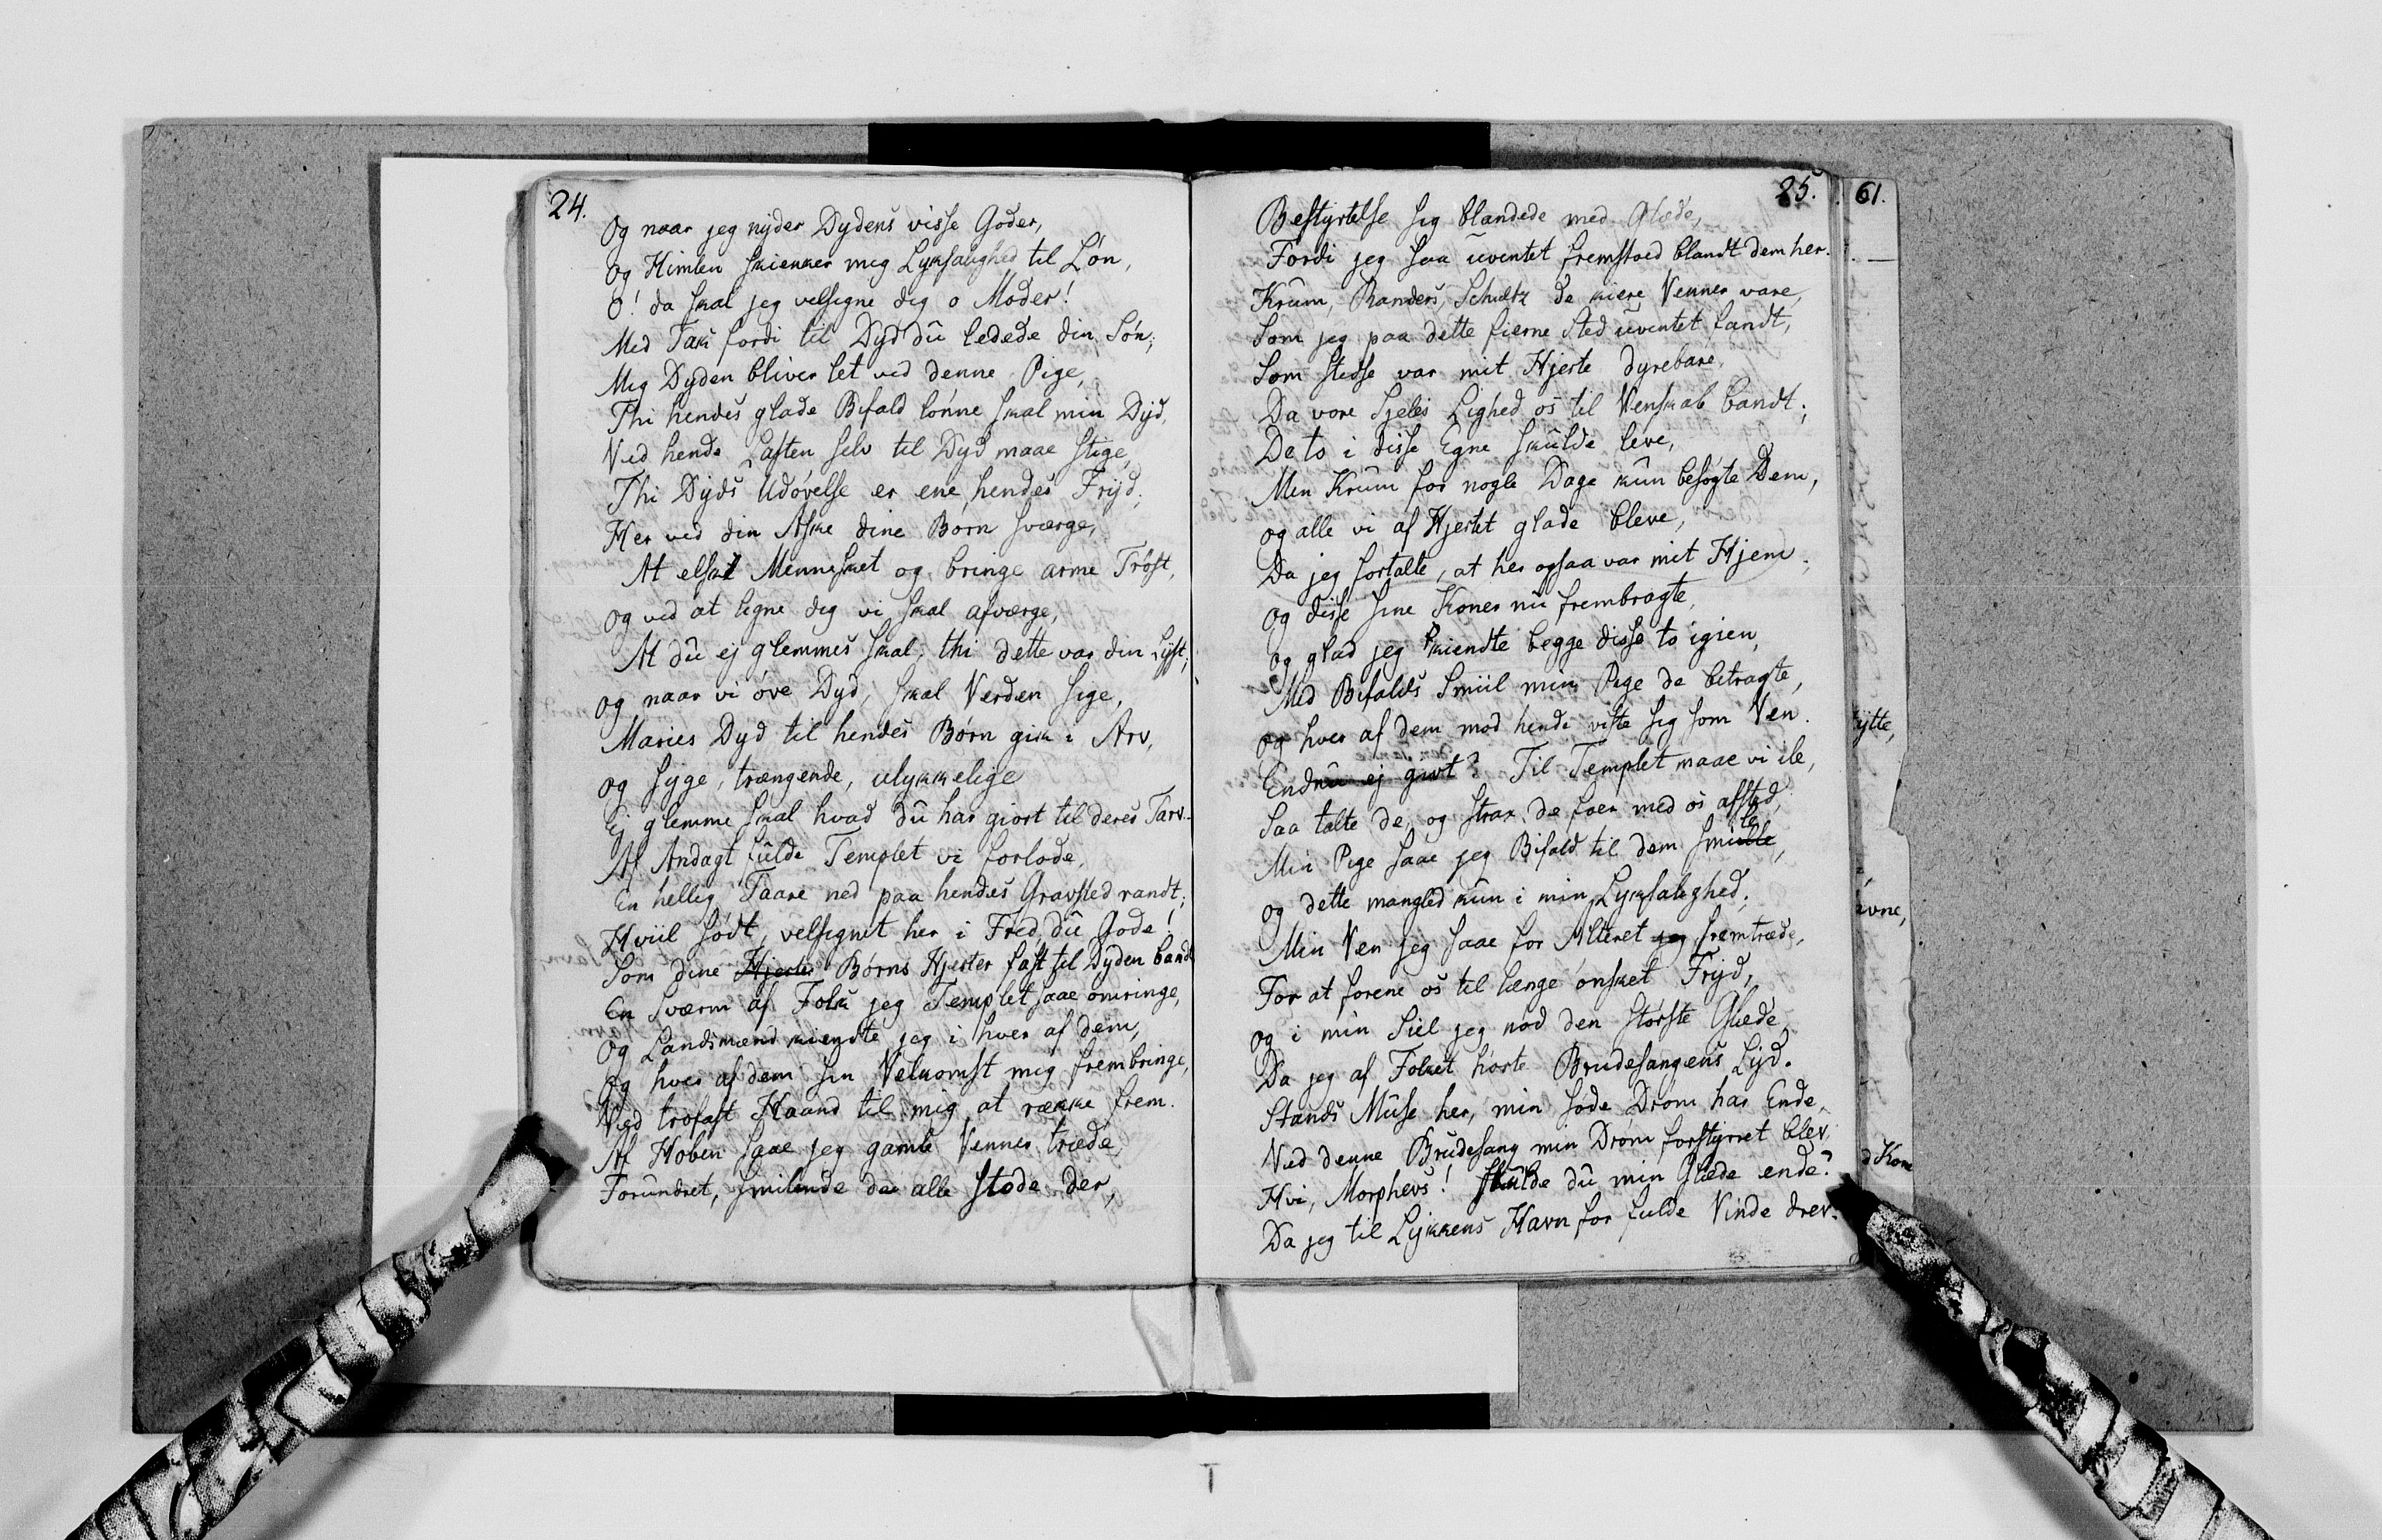 24.
Og naar jeg nyder Dydens visse Goder,
Og Himlen skienker mig Lyksalighed til Løn,
O! da skal jeg velsigne dig o Moder!
Med Tak fordi til Dyd dû ledede din Søn;
Mig Dyden bliver let ved denne Pige,
Thi hendes glade Bifald lønne skal min Dyd,
Ved hende Lasten selv til Dyd maae stige,
Thi Dyds Udøvelse er ene hendes Fryd;
Her ved din Aske dine Børn sværge,
At elske Mennesket og bringe arme Trøst,
og ved at ligne dig vi skal afværge,
At dû ej glemmes skal; thi dette var din Lyst;
og naar vi øve Dyd, skal Verden sige,
Maries Dyd til hendes Børn gik i Arv,
og syge, trængende, ulykkelige
Ej glemme skal hvad dû har giort til deres Tarv.
Af Andagt fulde Templet vi forlode,
En hellig Taare ned paa hendes Gravsted randt;
Hviil sødt, velsignet her i Fred, dû Gode!
Som dine Hjerter Børns Hjerter fast til Dyden bandt
En Sværm af Folk jeg Templet saae omringe,
Og Landsmænd kiendte jeg i hver af dem,
Og hver af dem sin Velkomst mig frembringe,
Ved trofast Haand til mig at række frem.
Af Hoben saae jeg gamle Venner træde,
Forûndret, smilende da alle stode der,
25.
Bestyrtelse sig blandede med Glæde,
Fordi jeg saa ûventet fremstoed blandt dem her.
Krûm, Randers, Schultz de kiere Venner vare,
Som jeg paa dette fierne Sted ûventet fandt,
Som stedse var mit Hjerte dyrebare,
Da vore Sjeles Lighed os til Venskab bandt;
De to i disse Egne skûlde leve,
Men Krûm for nogle Dage kûn besøgte Dem,
og alle vi af Hjertet glade bleve,
Da jeg fortalte, at her ogsaa var mit Hjem;
og disse sine Koner nû frembragte,
og glad jeg kiendte begge disse to igien,
Med Bifalds Smiil min Pige de betragte,
og hver af dem mod hende viste sig som Ven.
Endnû ej givt? Til Templet maae vi ile,
Saa talte de, og strax de foer med os afsted,
Min Pige saae jeg Bifald til dem smiille,
le
og dette mangled kûn i min Lyksalighed;
Min Ven jeg saae for Alteret jeg fremtræde,
For at forene os til længe ønsket Fryd,
og i min Siel jeg nød den største Glæde
Da jeg af Folket hørte Brudesangens Lyd.
Stands Mûse her, min søde Drøm har Ende,
Ved denne Brûdesang min Drøm forstyrret blev,
Hvi, Morphevs! skûlde dû min Glæde ende?
Da jeg til Lykkens Havn for fulde Vinde drev.
61.
ytte,
avne,
d Kom